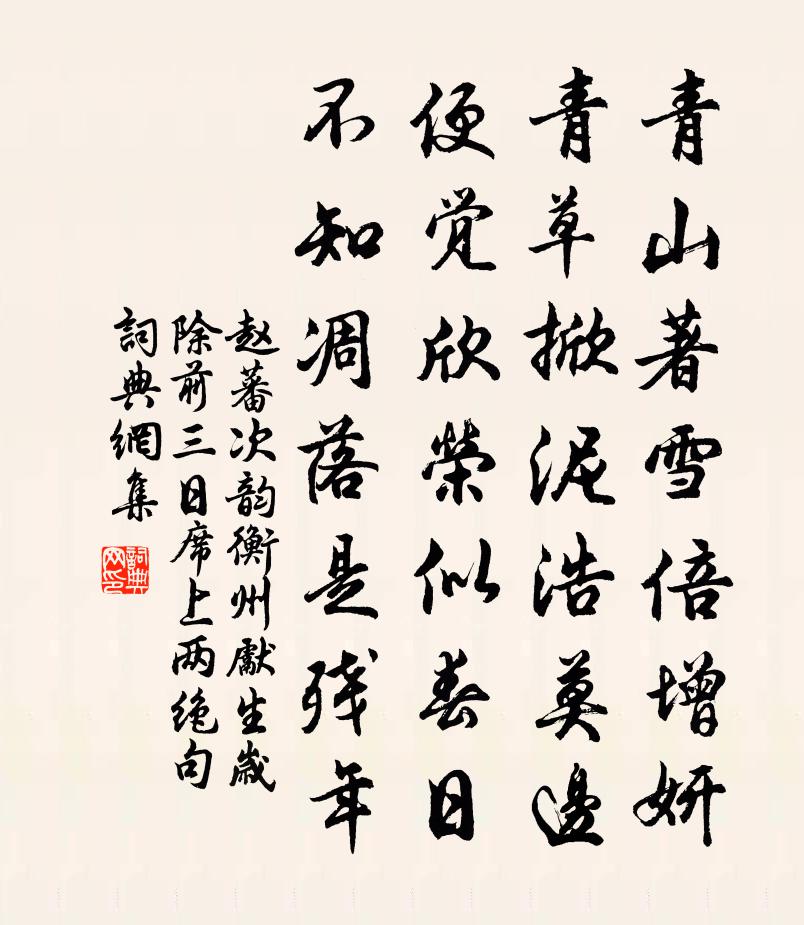 青山著雪倍增妍
青草掀泥浩莫邊
便觉欣榮似春日
不知凋落是残年
赵蕃次韵衡州獻生歲
除前三日席上两绝句
詞典網集
詞典网印